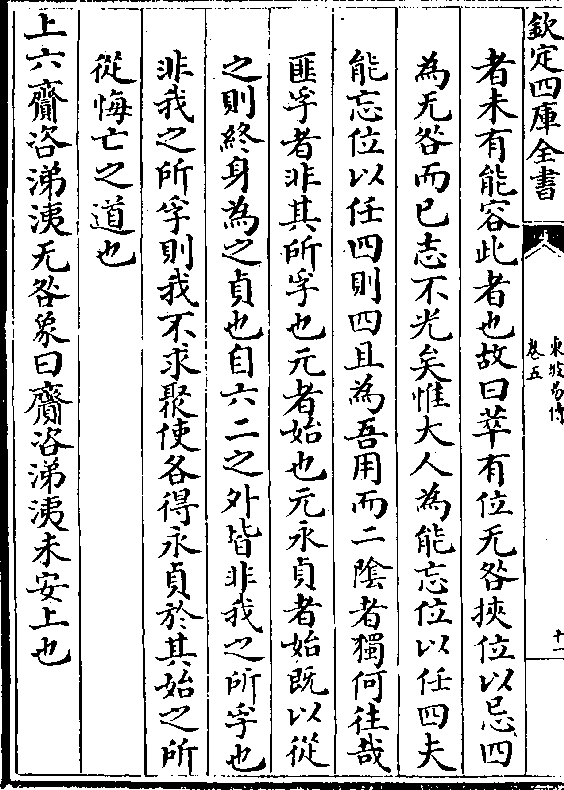 欽定四庫全書
東坡易傳
卷五
十一
者未有能容此者也故曰萃有位无咎挾位以忌四
為无咎而已志不光矣惟大人為能忘位以任四夫
能忘位以任四則四且為吾用而二隂者獨何往哉
匪孚者非其所孚也元者始也元永貞者始既以從
之則終身為之貞也自六二之外皆非我之所孚也
非我之所孚則我不求聚使各得永貞於其始之所
從悔亡之道也
上六齎咨涕洟无咎象曰齎咨涕洟未安上也